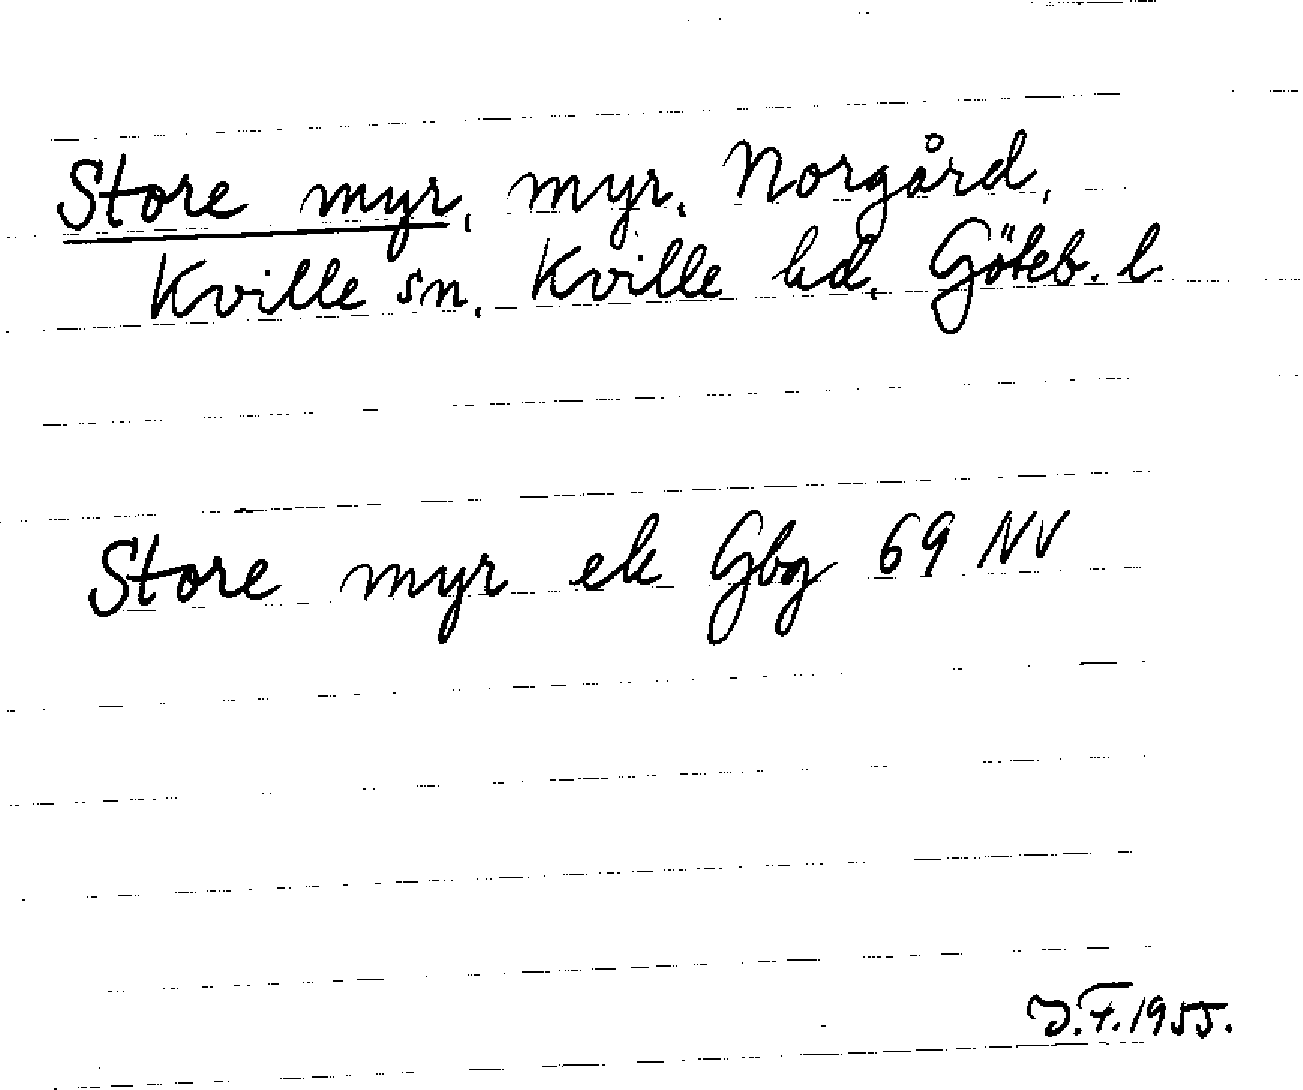 Store myr, myr, Norgård,
Kville sn, Kville hd, Göteb. l
Store myr ek Gbg 69 NV
J.F. 1955.